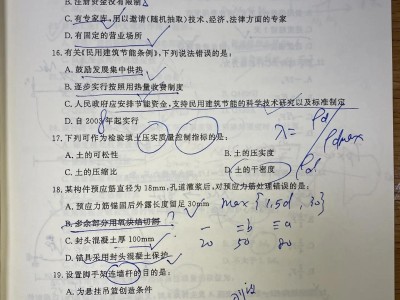 B. 注册资金没有限制
C. 有专家库, 用以邀请(随机抽取)技术、经济、法律方面的专家
D. 有固定的营业场所
16. 有关《民用建筑节能条例》, 下列说法错误的是:
A. 鼓励发展集中供热
B. 逐步实行按照用热量收费制度
C. 人民政府应安排节能资金, 支持民用建筑节能的科学技术研究以及标准制定
D. 自 2008 年起实行
17. 下列可作为检验填土压实质量控制指标的是:
λ= ρd/ρdmax
A. 土的可松性
B. 土的压实度
C. 土的压缩比
D. 土的干密度
ρd
18. 某构件预应筋直径为 18mm, 孔道灌浆后, 对预应力筋处理错误的是:
A. 预应力筋锚固后外露长度留足 30mm
max{1.5d, 30}
B. 多余部分用氧炔焰切割
一 二b 三a
C. 封头混凝土厚 100mm
20 50 80
D. 锚具采用封头混凝土保护
19. 设置脚手架连墙杆的目的是:
A. 为悬挂吊篮创造条件